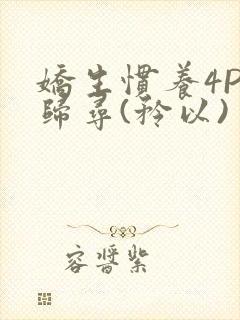 嬌生慣養4P
歸尋(矜以)
容醬紫